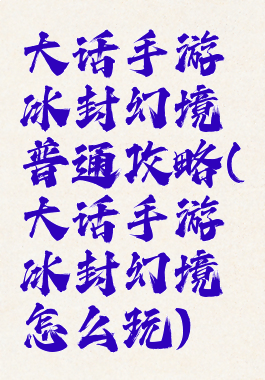 大话手游
冰封幻境
普通攻略(
大话手游
冰封幻境
怎么玩)